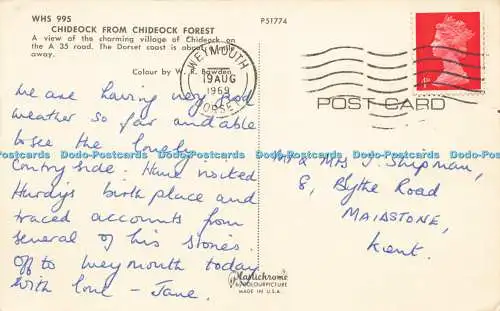 WHS 995
CHIDEOCK FROM CHIDEOCK FOREST
A view of the charming village of Chideock on
the A 35 road. The Dorset coast is about a mile
away.
Colour by W. R. Bawden
P51774
WEYMOUTH
19 AUG
1969
DORSET
4D
POST CARD
We are having very good
weather so far and able
to see the lovely
countryside. Have visited
Hardy's birth place and
traced accounts from
several of his stories.
Off to Weymouth today
With love - Jane.
Mr & Mrs Shipman,
8, Blythe Road
MAIDSTONE,
Kent.
Plastichrome
by COLOURPICTURE
MADE IN U.S.A.
Dodo-Postcards Dodo-Postcards Dodo-Postcards Dodo-Postcards Dodo-Postcards Dodo-Postcards